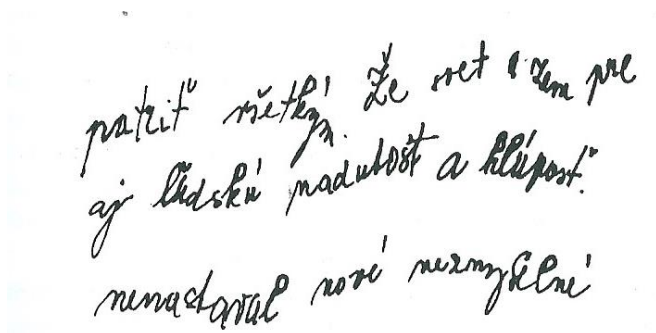 patriť všetkým. Že svet a zem pre
aj ľudskú nadutosť a hlúposť.
nenastaval nové nezmyselné